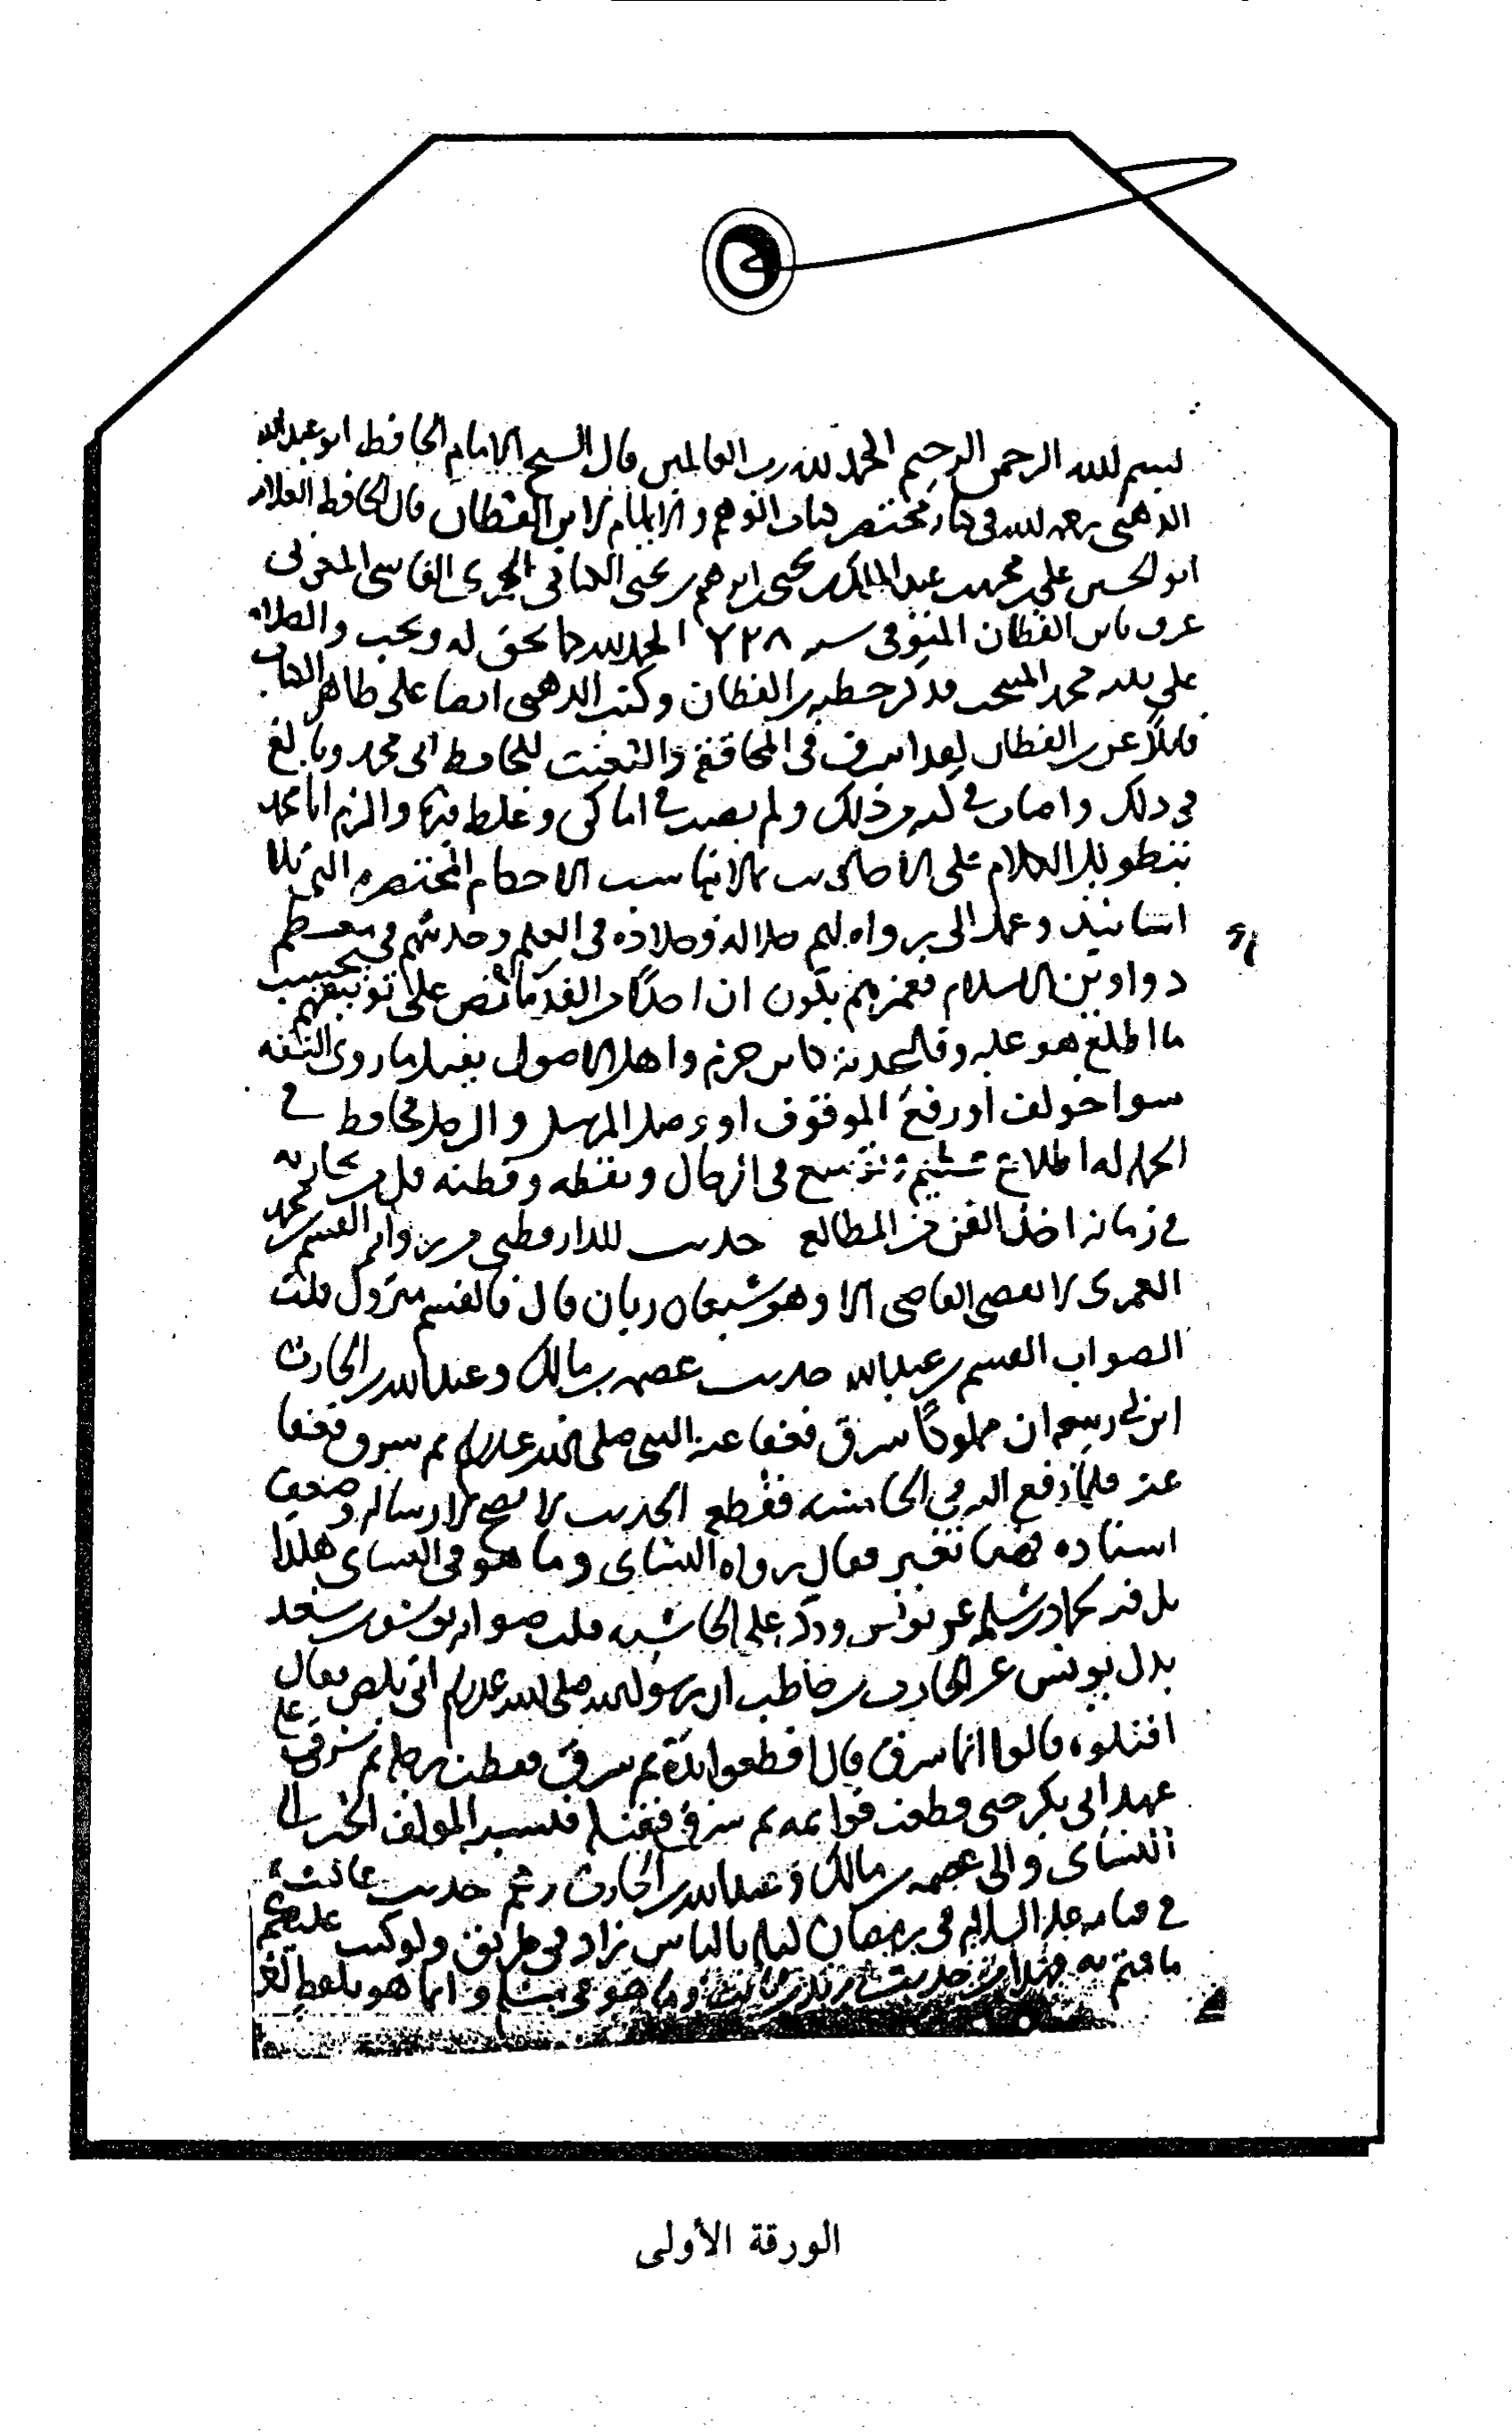 بسم لله الرحمن الرحيم الحمد لله رب العالمين قال الشيخ الامام الحافظ ابو عبد الله
الذهبي رحمه لله في مختصر كتاب الوهم والايهام لابن القطان قال الحافظ العلامه
ابو الحسن علي بن محمد بن عبد الملك بن يحيى بن ابرهيم بن يحيى الكتامي الحميري الفاسي المغربي
عرف بابن القطان المتوفى سنه ٧٢٨ الحمد لله كما يحق له ويجب والصلاه
على نبيه محمد المنتجب فذكر خطبه ابن القطان وكتب الذهبي ايضا على ظاهر الكتاب
قائلا عن ابن القطان لقد اسرف في المحاققه والتعنت للحافظ ابي محمد وبالغ
في ذلك واصاب في كثير من ذلك ولم يصب في اماكن وغلط فيها والزم ابا محمد
بتطويل الكلام على الاحاديث بما لا يناسب الاحكام المختصره التي بلا
اسانيد وعمد الى رواه لهم جلاله وجلاده في العلم وحديثهم في معظم
دواوين الاسلام فغمزهم بكون ان احدا من القدما ما نص على توثيقهم بحسب
ما اطلع هو عليه وقاعدته كابن حزم واهل الاصول يقبل ما روى الثقه
سوا خولف او رفع الموقوف او وصل المرسل والرجل فحافظ في
الجمله له اطلاع عظيم وتوسع في الرجال ويقظه وفطنه قل من يجاريه
في زمانه اخذ الفن من المطالع حديث للدارقطني من روايه القسم بن محمد
العمري لا يقضي القاضي الا وهو شبعان ريان قال فالقسم متروك قلت
الصواب القسم بن عبد الله حديث عصمه بن مالك وعبد الله بن الحارث
ابن ابي ربيعه ان مملوكا سرق فعفا عنه النبي صلى الله عليه وسلم ثم سرق فعفا
عنه فلما رفع اليه في الخامسه فقطع الحديث لا يصح لارساله وضعف
اسناده فهنا تغير فقال رواه النسائي وما هو في النسائي هكذا
بل فيه حماد بن سلمه عن يونس وذكر على الحاشيه قلت صوابه يوسف بن سعد
بدل يونس عن الحارث بن حاطب ان رسول الله صلى الله عليه وسلم اتي بلص فقال
اقتلوه قالوا انما سرق قال اقطعوا يده ثم سرق فقطعت رجله ثم سرق على
عهد ابي بكر حتى قطعت قوائمه ثم سرق فقتله فنسبه المولف الخبر الى
النسائي والى عصمه بن مالك وعبد الله بن الحارث وهم حديث عائشه
في قيامه عليه السلام في رمضان ليله بالناس زاد في طريق ولو كتب عليكم
ما قمتم به فهذا من حديث زيد بن ثابت وما هو في وانما هو بلفظ
الورقة الأولى